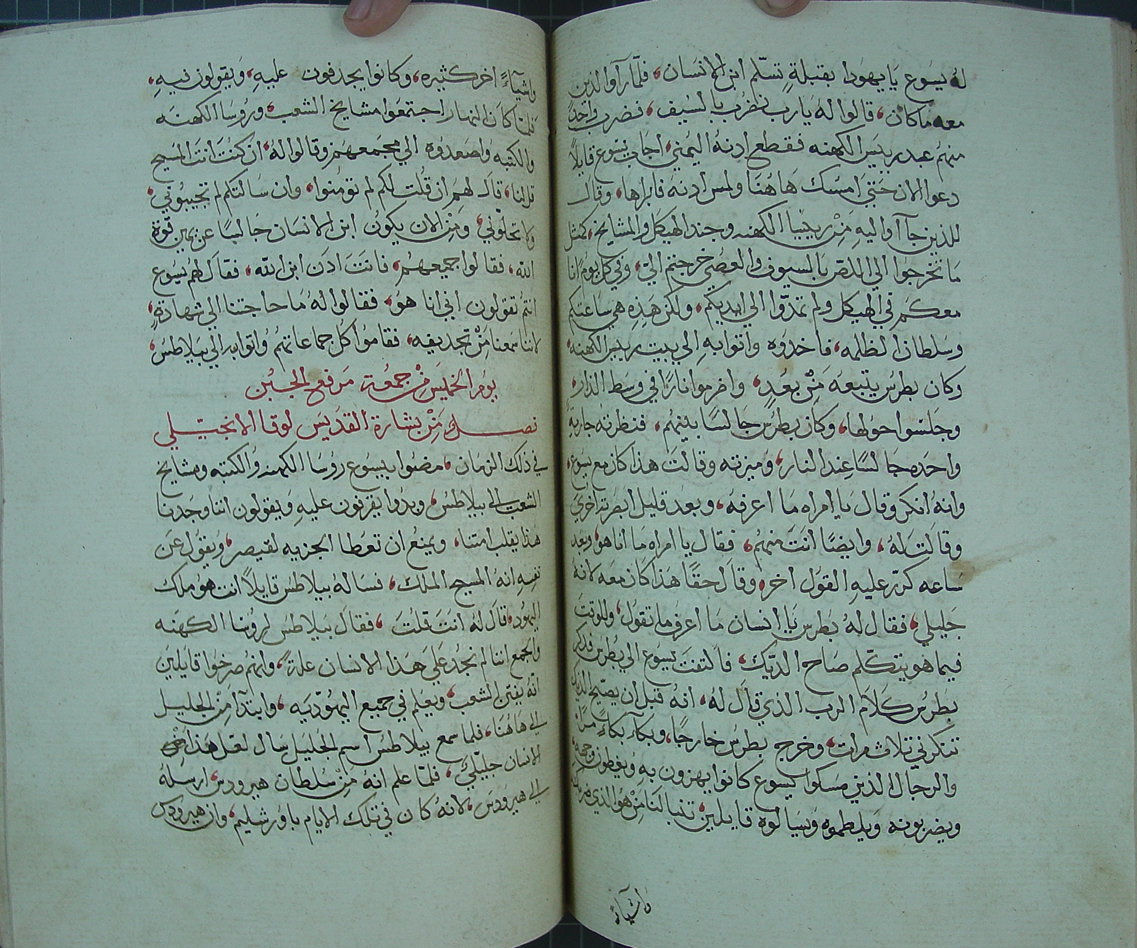 له يسوع يا يهودا بقبلةٍ تسلم ابن الانسان، فلما راوا الذين
معه ما كان، قالوا له يارب نضرب بالسيف، فضرب واحدًا
منهم عبد رييس الكهنه فقطع ادنه اليمني، اجاب يسوع قايلًا
دعوا الان حتي امسك هاهنا ولمس ادنه فابراها، وقال
للذين جآ اوا اليه من رييسا الكهنه وجند الهيكل والمشايخ، كمثل
ما تخرجوا الي اللص بالسيوف والعصي خرجتم الي، وفي كل يوم انا
معكم في الهيكل ولم تمدّوا الي ايديكم، ولكن هذه هي ساعتكم
وسلطان الظلمه، فاخدوه واتوا به الي بيت رييس الكهنه،
وكان بطرس يتبعه من بعد، واضرموا نارًا في وسط الدار،
وجلسوا حولها، وكان بطرس جالسًا بينهم، فنظرته جارية
واحده جالسًا عند النار، وميزته وقالت هذا كان مع يسوع،
وانه انكر وقال يا امراه ما اعرفه، وبعد قليل ابصرته اخري
وقالت له، وايضًا انت منهم، فقال يا امراه ما انا هو، وبعد
ساعه كرر عليه القول اخر، وقال حقًا هذا كان معه لانه
جليلي، فقال له بطرس يا انسان ما اعرف ما تقول، وللوقت
فيما هو يتكلم صاح الديك، فالتفت يسوع الي بطرس فدكر
بطرس كلام الرب الذي قال له، انه قبل ان يصيح الديك
تنكرني تلات مرات، وخرج بطرس خارجًا، وبكا بكاءً مرًا،
والرجال الذين مسكوا يسوع كانوا يهزون به ويغطون وجهه،
ويضربونه ويلطموه ويسالوه قايلين، تنبا لنا من هو الذي ضربك
واشياءً
واشيآءً اخر كثيره، وكانوا يجدفون عليه، ويقولون فيه،
فلما كان النهار اجتمعوا مشايخ الشعب، وروسا الكهنه
والكتبه واصعدوه الي مجمعهم وقالوا له، ان كنت انت المسيح
قل لنا، قال لهم ان قلت لكم لم تومنوا، وان سالتكم لم تجيبوني
ولا تخلوني، ومن الان يكون ابن الانسان جالسًا عن يمين قوة
الله، فقالوا جميعهم، فانت ادن ابن الله، فقال لهم يسوع
انتم تقولون اني انا هو، فقالوا له ما حاجتنا الي شهادةٍ،
لاننا سمعنا من تجديفه، فقاموا كل جماعاتهم واتوا به الي بيلاطس،
يوم الخميس من جمعة مرفع الجبن
فصل من بشارة القديس لوقا الانجيلي
في ذلك الزمان، مضوا بيسوع روسا الكهنه والكتبه ومشايخ
الشعب الي بيلاطس، وبدوا يقرفون عليه ويقولون اننا وجدنا
هذا يقلب امتنا، ويمنع ان تعطا الجزيه لقيصر، ويقول عن
نفسه انه المسيح الملك، فساله بيلاطس قايلًا انت هو ملك
اليهود، قال له انت قلت، فقال بيلاطس لروسا الكهنه
والجمع اننا لم نجد علي هذا الانسان علة، وانهم صرخوا قايلين
انه يفتن الشعب، ويعلم في جميع اليهوديه، وابتدآ من الجليل
الي هاهنا، فلما سمع بيلاطس اسم الجليل سال لعل هذا هو
الانسان جليليّ، فلما علم انه من سلطان هيرودس، ارسله
الي هيرودس، لانه كان في تلك الايام باورشليم، وان هيرودس